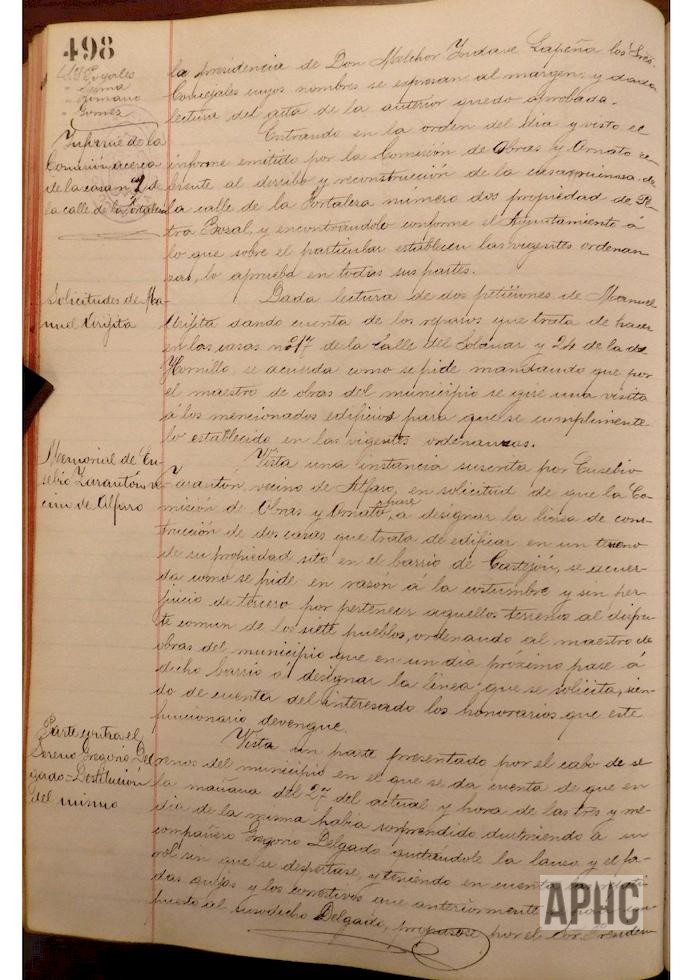 498
la presidencia de Don Melchor Yndave Lapeña los Sres.
Concejales cuyos nombres se expresan al margen, y dada
lectura del acta de la anterior quedo aprobada.
Romano
Gomez
Informe de la
Comisión acerca
de la casa nº 2 de
la calle de la Fortaleza
Entrando en la orden del dia y visto el
informe emitido por la Comisión de Obras y Ornato re-
ferente al derribo y reconstrucción de la casa ruinosa de
la calle de la Fortaleza número dos propiedad de Pe-
tra Bozal, y encontrandolo conforme el Ayuntamiento á
lo que sobre el particular establecen las vigentes ordenan-
zas, lo aprueba en todas sus partes.
Solicitudes de Ma-
nuel
Dada lectura de dos peticiones de Manuel
dando cuenta de los reparos que trata de hacer
en las casas nº 17 de la Calle del y 24 de la de
Hornillo, se acuerda como se pide mandando que por
el maestro de obras del municipio se gire una visita
á los mencionados edificios para que se cumplimente
lo establecido en las vigentes ordenanzas.
Memorial de Eu-
sebio Zarantón ve-
cino de Alfaro
Vista una instancia suscrita por Eusebio
Zarantón, vecino de Alfaro, en solicitud de que la Co-
misión de Obras y Ornato pase á designar la linea de cons-
trucción de dos casas que trata de edificar en un terreno
de su propiedad sito en el barrio de Castejón, se acuer-
da como se pide en razon á la costumbre y sin per-
juicio de tercero por pertenecer aquellos terrenos al disfru-
te comun de los siete pueblos, ordenando al maestro de
obras del municipio que en un dia próximo pase á
dicho barrio á designar la linea que se solicita, sien-
do de cuenta del interesado los honorarios que este
funcionario devengue.
Parte contra el
Sereno Gregorio Del-
gado = Destitución
del mismo
Vista un parte presentado por el cabo de se-
renos del municipio en el que se da cuenta de que en
la mañana del 27 del actual y hora de las tres y me-
dia de la misma habia sorprendido durmiendo á su
compañero Gregorio Delgado quitandole la lanza y el fa-
rol sin que se despertase, y teniendo en cuenta las
das quejas y los correctivos que anteriormente
puesto al susodicho Delgado, propúsose por el Sor. Presiden-
APHC